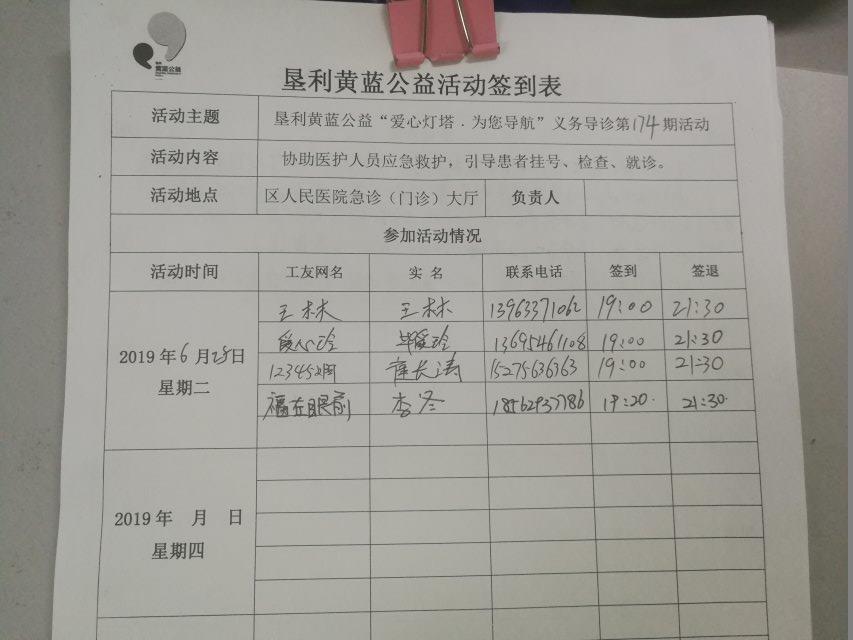 黄蓝公益
垦利黄蓝公益活动签到表
活动主题 垦利黄蓝公益“爱心灯塔．为您导航”义务导诊第174期活动
活动内容 协助医护人员应急救护，引导患者挂号、检查、就诊。
活动地点 区人民医院急诊（门诊）大厅 负责人
参加活动情况
活动时间 工友网名 实 名 联系电话 签到 签退
王林 王林 13963371062 19:00 21:30
爱心玲 玲 13695461108 19:00 21:30
2019 年 6 月 25 日
12345 长涛 15275636363 19:00 21:30
星期二
福在眼前 李冬 18562937786 19:20. 21:30.
2019 年 月 日
星期四